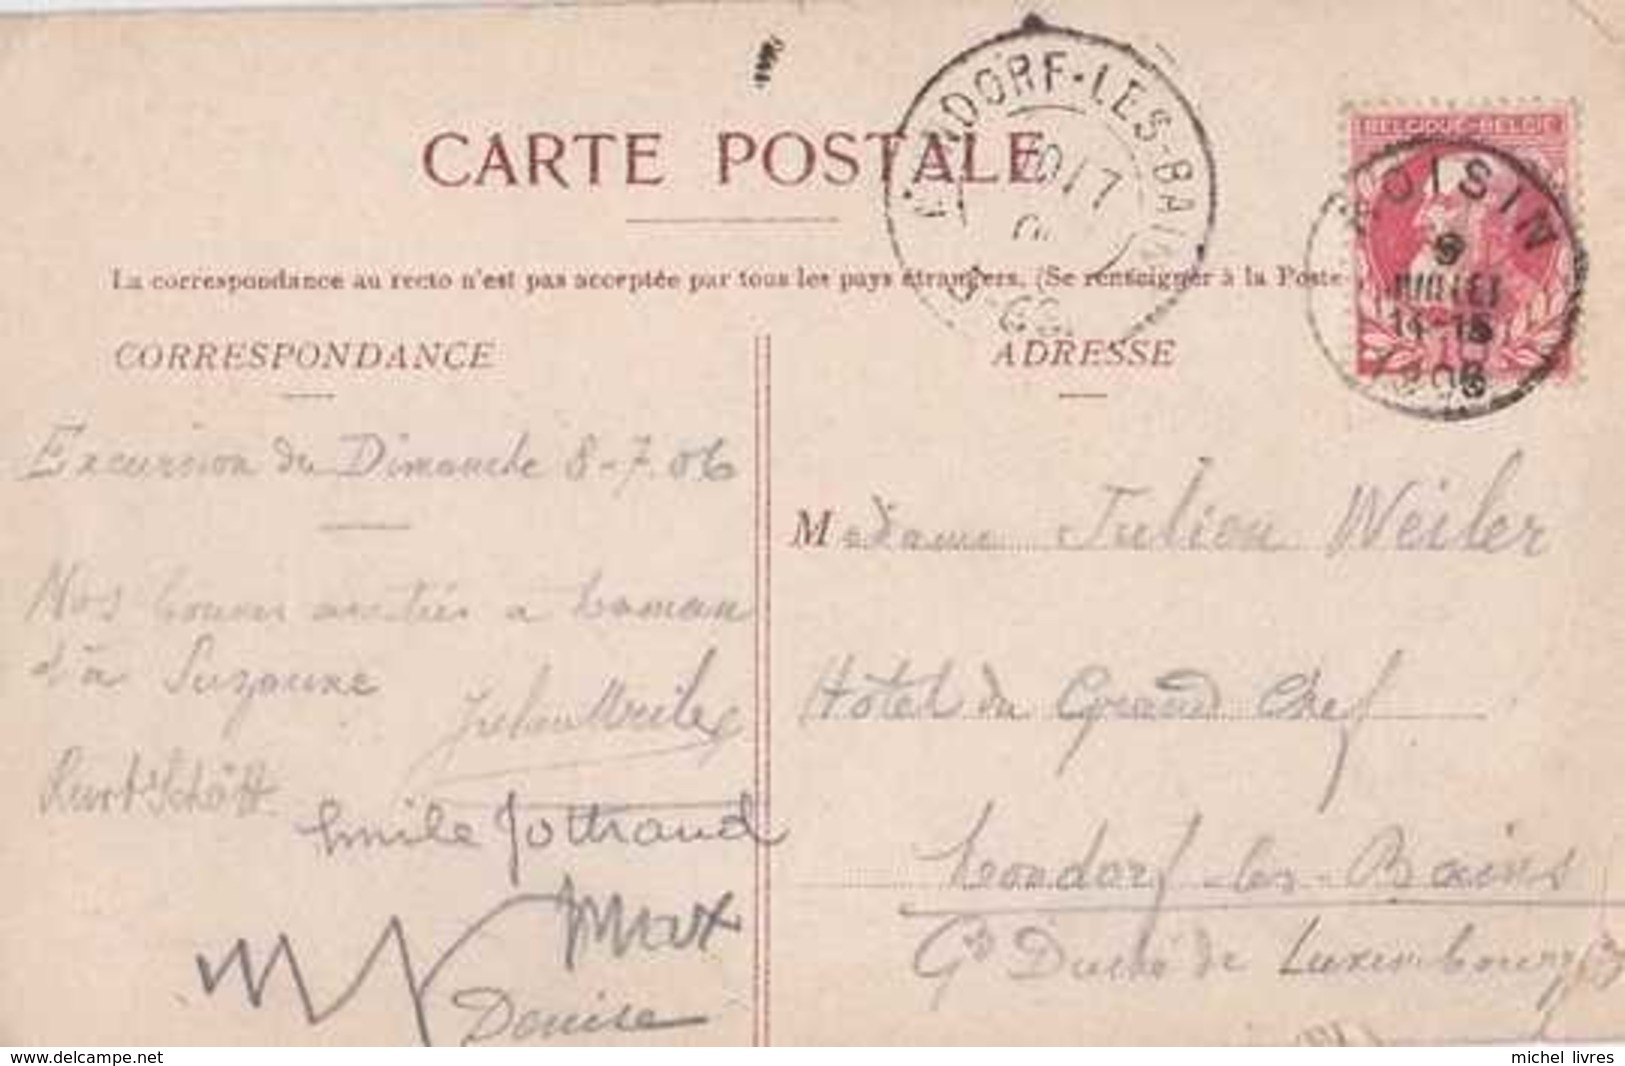 CARTE POSTALE
La correspondance au recto n'est pas acceptée par tous les pays étrangers. (Se renseigner à la Poste
CORRESPONDANCE
ADRESSE
BELGIQUE-BELGIE
ROISIN
9
JUILLET
14-15
1906
NDORF-LES-BAINS
10/7
Excursion du Dimanche 8-7.06
Nos bonnes amitiés à maman
à Suzanne
Julien Weiler
Kurt Schött
Emile Jottrand
Max
Denise
Madame Julien Weiler
Hôtel du Grand Chef
Mondorf-les-Bains
Gd Duché de Luxembourg
www.delcampe.net
michel_livres